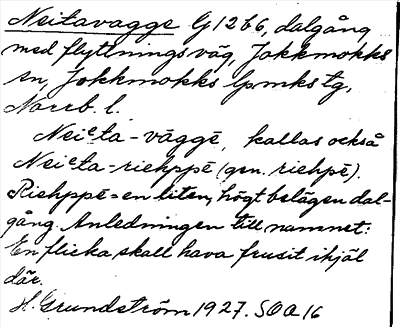 Neitavagge G12b6, dalgång
med flyttningsväg, Jokkmokks
sn, Jokkmokks lpmks tg,
Norrb. l.
Neiᵉta-vàggē, kallas också
Neiᵉta-riehppē (gen. riehpē).
Riehppē = en liten, högt belägen dal-
gång. Anledningen till namnet:
En flicka skall hava frusit ihjäl
där.
H. Grundström 1927. SOA 16